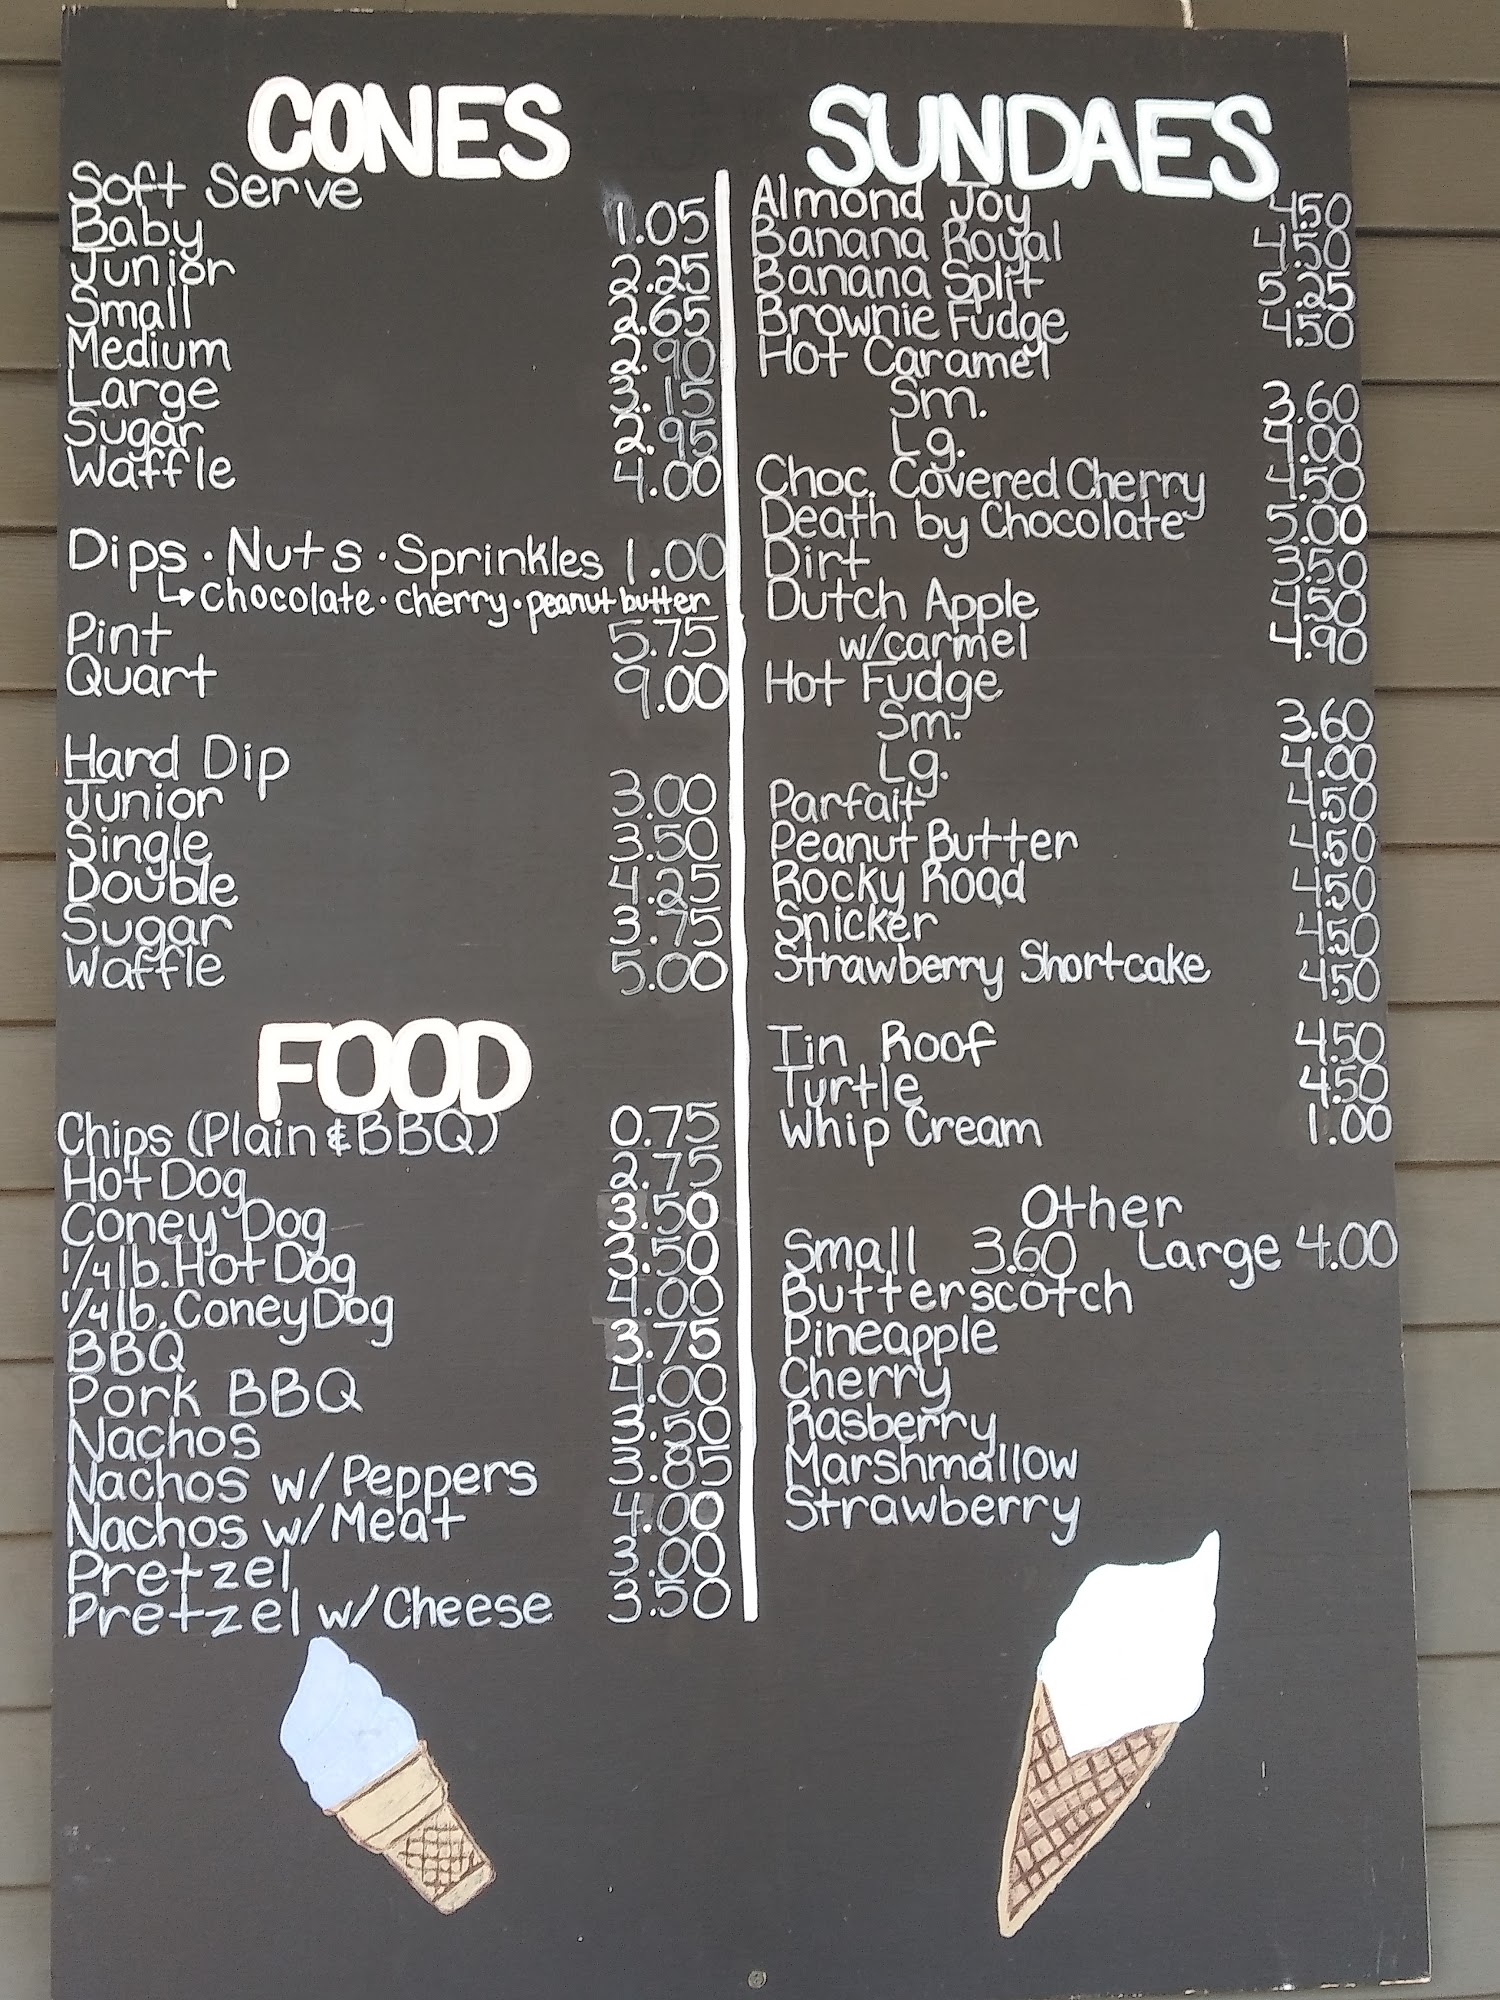 CONES
Soft Serve
Baby 1.05
Junior 2.25
Small 2.65
Medium 2.90
Large 3.15
Sugar 2.95
Waffle 4.00
Dips · Nuts · Sprinkles 1.00
↳ Chocolate · cherry · peanut butter
Pint 5.75
Quart 9.00
Hard Dip
Junior 3.00
Single 3.50
Double 4.25
Sugar 3.75
Waffle 5.00
FOOD
Chips (Plain & BBQ) 0.75
Hot Dog 2.75
Coney Dog 3.50
1/4 lb. Hot Dog 3.50
1/4 lb. Coney Dog 4.00
BBQ 3.75
Pork BBQ 4.00
Nachos 3.50
Nachos w/ Peppers 3.85
Nachos w/ Meat 4.00
Pretzel 3.00
Pretzel w/ Cheese 3.50
SUNDAES
Almond Joy 4.50
Banana Royal 4.50
Banana Split 5.25
Brownie Fudge 4.50
Hot Caramel
Sm. 3.60
Lg. 4.00
Choc. Covered Cherry 4.50
Death by Chocolate 5.00
Dirt 3.50
Dutch Apple 4.50
w/carmel 4.90
Hot Fudge
Sm. 3.60
Lg. 4.00
Parfait 4.50
Peanut Butter 4.50
Rocky Road 4.50
Snicker 4.50
Strawberry Shortcake 4.50
Tin Roof 4.50
Turtle 4.50
Whip Cream 1.00
Other
Small 3.60 Large 4.00
Butterscotch
Pineapple
Cherry
Rasberry
Marshmallow
Strawberry